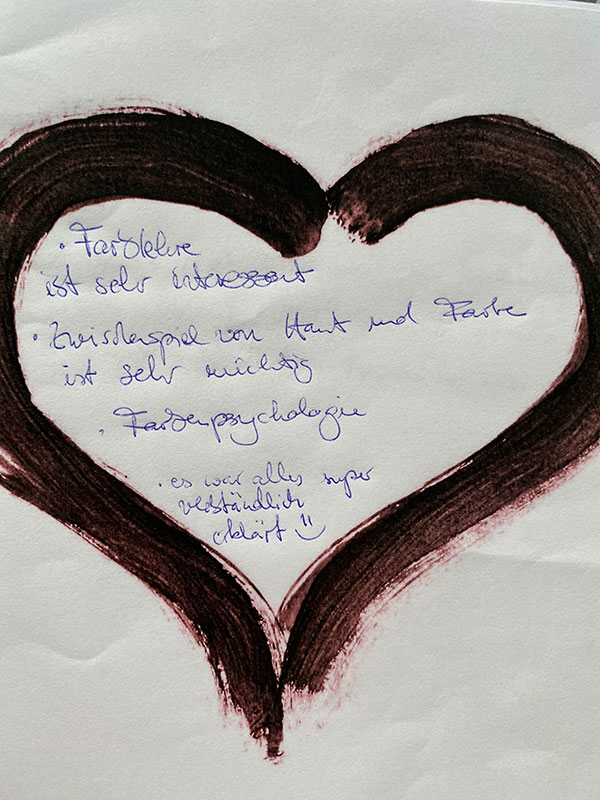 · Farblehre
ist sehr interessant
· Zwischenspiel von Haut und Farbe
ist sehr wichtig
· Farbenpsychologie
· es war alles super
verständlich
erklärt :)